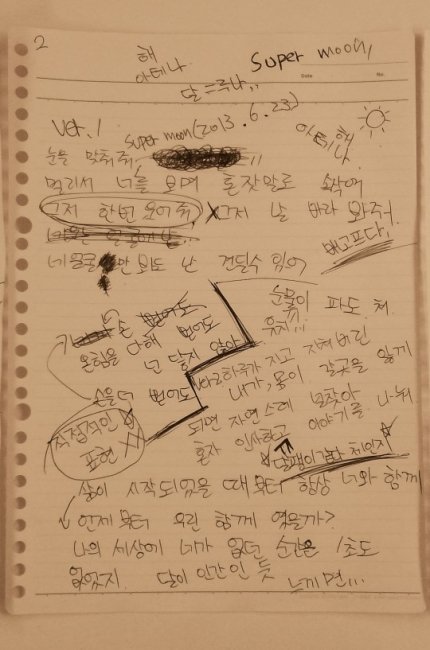 2
해
아테나
Super moon,
Date
No.
달 = 루나..
Ver.1
Super moon(2013.6.23)
아테나 해
눈을 맞춰줘
멀리서 너를 보며 혼잣말로 속삭여
그저 한번 웃어줘 X그저 날 바라봐줘.
배고프다,
네 얼굴 만 봐도 난 견딜수 있어
눈물이 파도 쳐.
손 뻗어도
온힘을 다해 뻗어도
넌 닿지 않아
손을 더 뻗어도
하루가 지고 지쳐버린
내가, 몸이 갈곳을 잃게
되면 자연스레 널 찾아
혼자 인사하고 이야기를 나눠
직접적인
표현
달팽이
삶이 시작되었을 때부터 항상 너와 함께
언제부터 우린 함께 였을까?
나의 세상에 네가 없던 순간은 1초도
없었지. 달이 인간인 듯
느끼면...